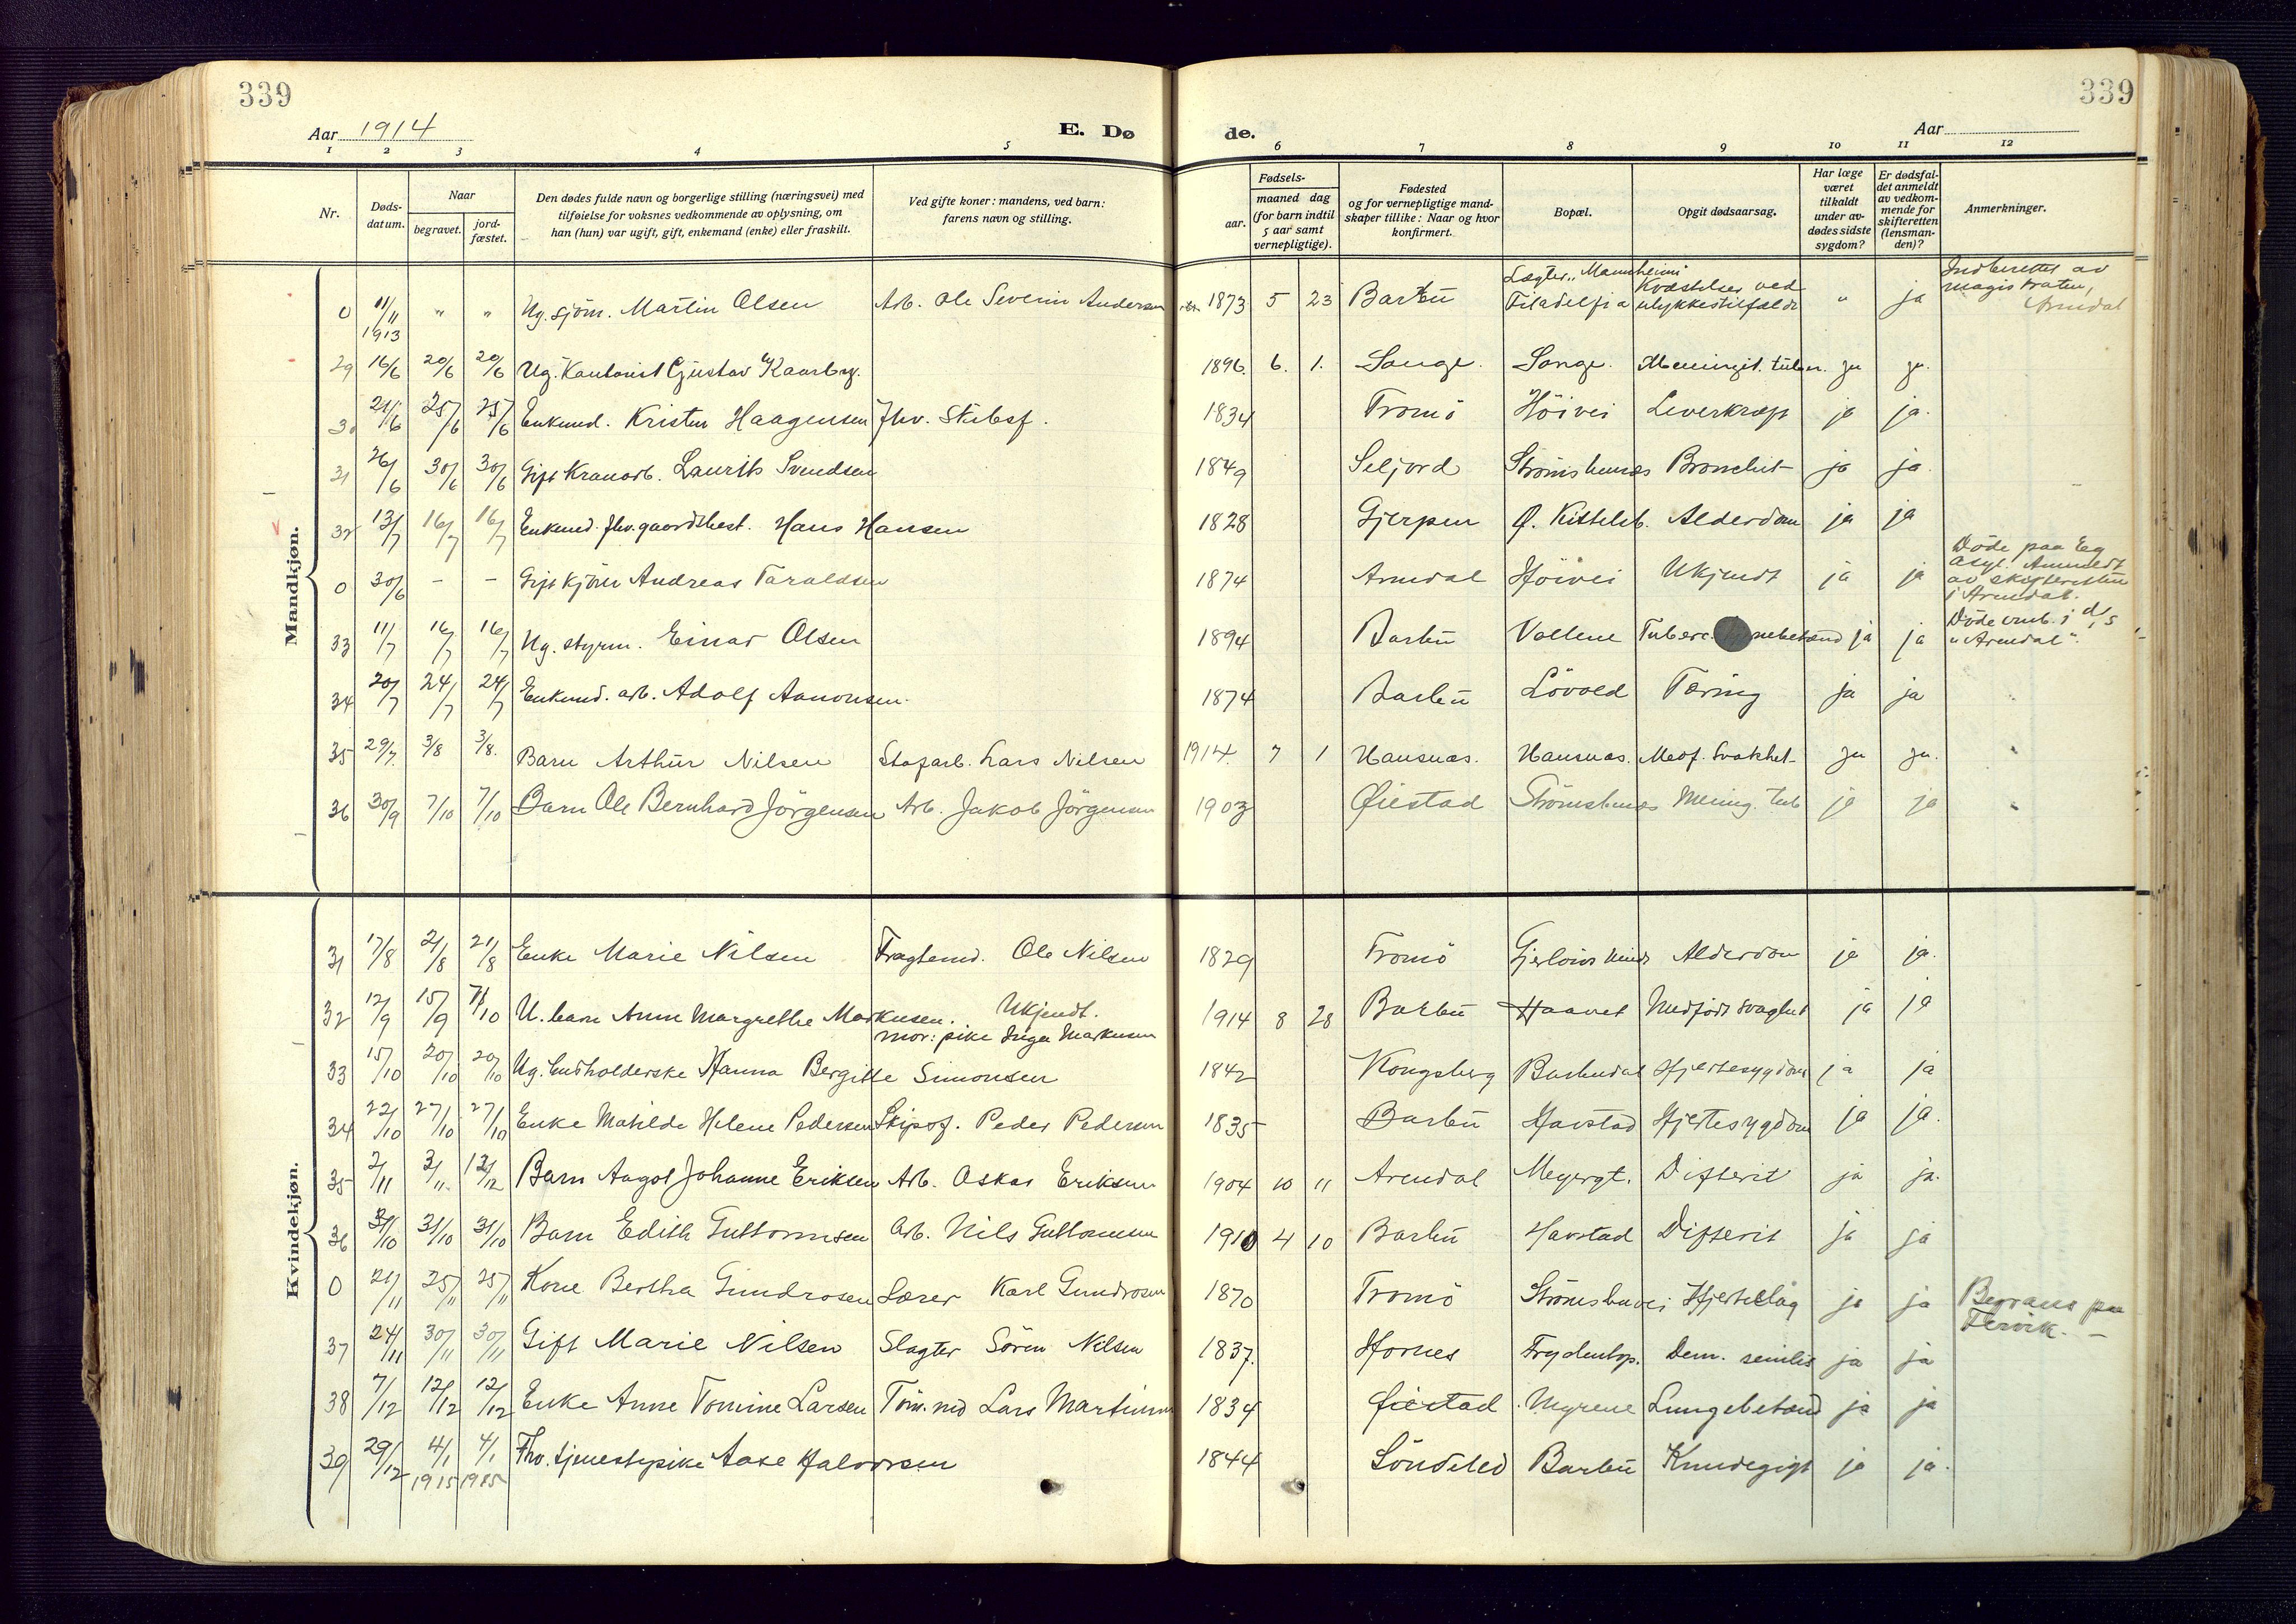 339
339
Aar 1914
E. Dø
de.
Aar
1 2 3 4 5 6 7 8 9 10 11 12
Nr.
Døds-
datum.
Naar
begravet.
jord-
fæstet.
Den dødes fulde navn og borgerlige stilling (næringsvei) med
tilføielse for voksnes vedkommende av oplysning, om
han (hun) var ugift, gift, enkemand (enke) eller fraskilt.
Ved gifte koner: mandens, ved barn:
farens navn og stilling.
Fødsels-
aar.
maaned dag
(for barn indtil
5 aar samt
vernepligtige).
Fødested
og for vernepligtige mand-
skaper tillike: Naar og hvor
konfirmert.
Bopæl.
Opgit dødsaarsag.
Har læge
været
tilkaldt
under av-
dødes sidste
sygdom?
Er dødsfal-
det anmeldt
av vedkom-
mende for
skifteretten
(lensman-
den)?
Anmerkninger.
Mandkjøn.
0 11/11 1913 " " Ug. sjöm. Martin Olsen Arb. Ole Severin Andersen 1873 5 23 Barbu Filadelfia Kvæstelser ved ulykkestilfælde " ja Indberettet av magistraten, Arendal
29 16/6 20/6 20/6 Ug. Kontorist Gustav Kaarby. 1896. 6. 1. Songe. Songe. Meningit. tuber. ja ja.
30 21/6 25/6 25/6 Enkemd. Kristen Haagensen Fhv. Skibsf. 1834 Tromö Höivei Leverkræft ja ja.
31 26/6 30/6 30/6 Gift Kranarb. Laurits Svendsen 1849 Seljord Strömsbunes Bronchit ja ja.
32 13/7 16/7 16/7 Enkemd. fhv. gaardsbest. Hans Hansen 1828 Gjerpen Ø. Kittelsb. Alderdom ja ja
0 30/6 - - Gift kjörer Andreas Taraldsen 1874 Arendal Höivei Ukjendt ja ja Döde paa Eg Asyl. Anmeldt av skifteretten i Arendal.
33 11/7 16/7 16/7 Ug. styrm. Einar Olsen 1894 Barbu Vollene Tuberc. ja ja Döde omb. i d/s "Arendal".
34 20/7 24/7 24/7 Enkemd. arb. Adolf Aanonsen. 1874 Barbu Lövold Tæring ja ja
35 29/7. 3/8 3/8. Barn Arthur Nilsen Lars Nilsen 1914. 7 1 Hansnæs. Hansnæs. Medf. Svakhet ja ja.
36 30/9 7/10 7/10 Barn Ole Bernhard Jörgensen Arb. Jakob Jörgensen 1903 Øiestad Strömsbunes Mening. tub ja ja
Kvindekjøn.
31 17/8 21/8 21/8 Enke Marie Nilsen Fragtemd. Ole Nilsen 1829 Tromö Alderdom ja ja.
32 12/9 15/9 7/10 U. barn Anne Margrethe Markusen. Ukjendt.
mor: pike Inga Markusen 1914 8 28 Barbu Haavet Medfödt svaghet ja ja
33 15/10 20/10 20/10 Ug. husholderske Hanna Bergitte Simonsen 1842 Kongsberg Barbudal Hjertesygdom ja ja
34 22/10 27/10 27/10 Enke Matilde Helene Pedersen Skipsf. Peder Pedersen 1835 Barbu Havstad Hjertesygdom ja ja.
35 2/11 3/11 12/12 Barn Aagot Johanne Eriksen Arb. Oskar Eriksen 1904 10 11 Arendal Meyergt. Difterit ja ja.
36 31/10 31/10 Barn Edith Guttormsen Arb. Nils Guttormsen 1910 4 10 Barbu Havstad Difterit ja ja
0 21/11 25/11 25/11 Kone Bertha Gundrosen Lærer Karl Gundrosen 1870 Tromö Strömsbuvei Hjerteslag ja ja Begraves paa Flervik.
37 24/11 30/11 30/11 Gift Marie Nilsen Slagter Sören Nilsen 1837. Hornes Frydentop. Dem. senilis ja ja
38 7/12 12/12 12/12 Enke Anne Tomine Larsen Töm.md Lars Martinsen 1834 Øiestad Myrene Lungebetænd ja ja
39 29/12 4/1 1915 4/1 1915 Fhv. tjenestepike Aase Halvorsen 1844 Söndeled Barbu Knudegigt ja ja.